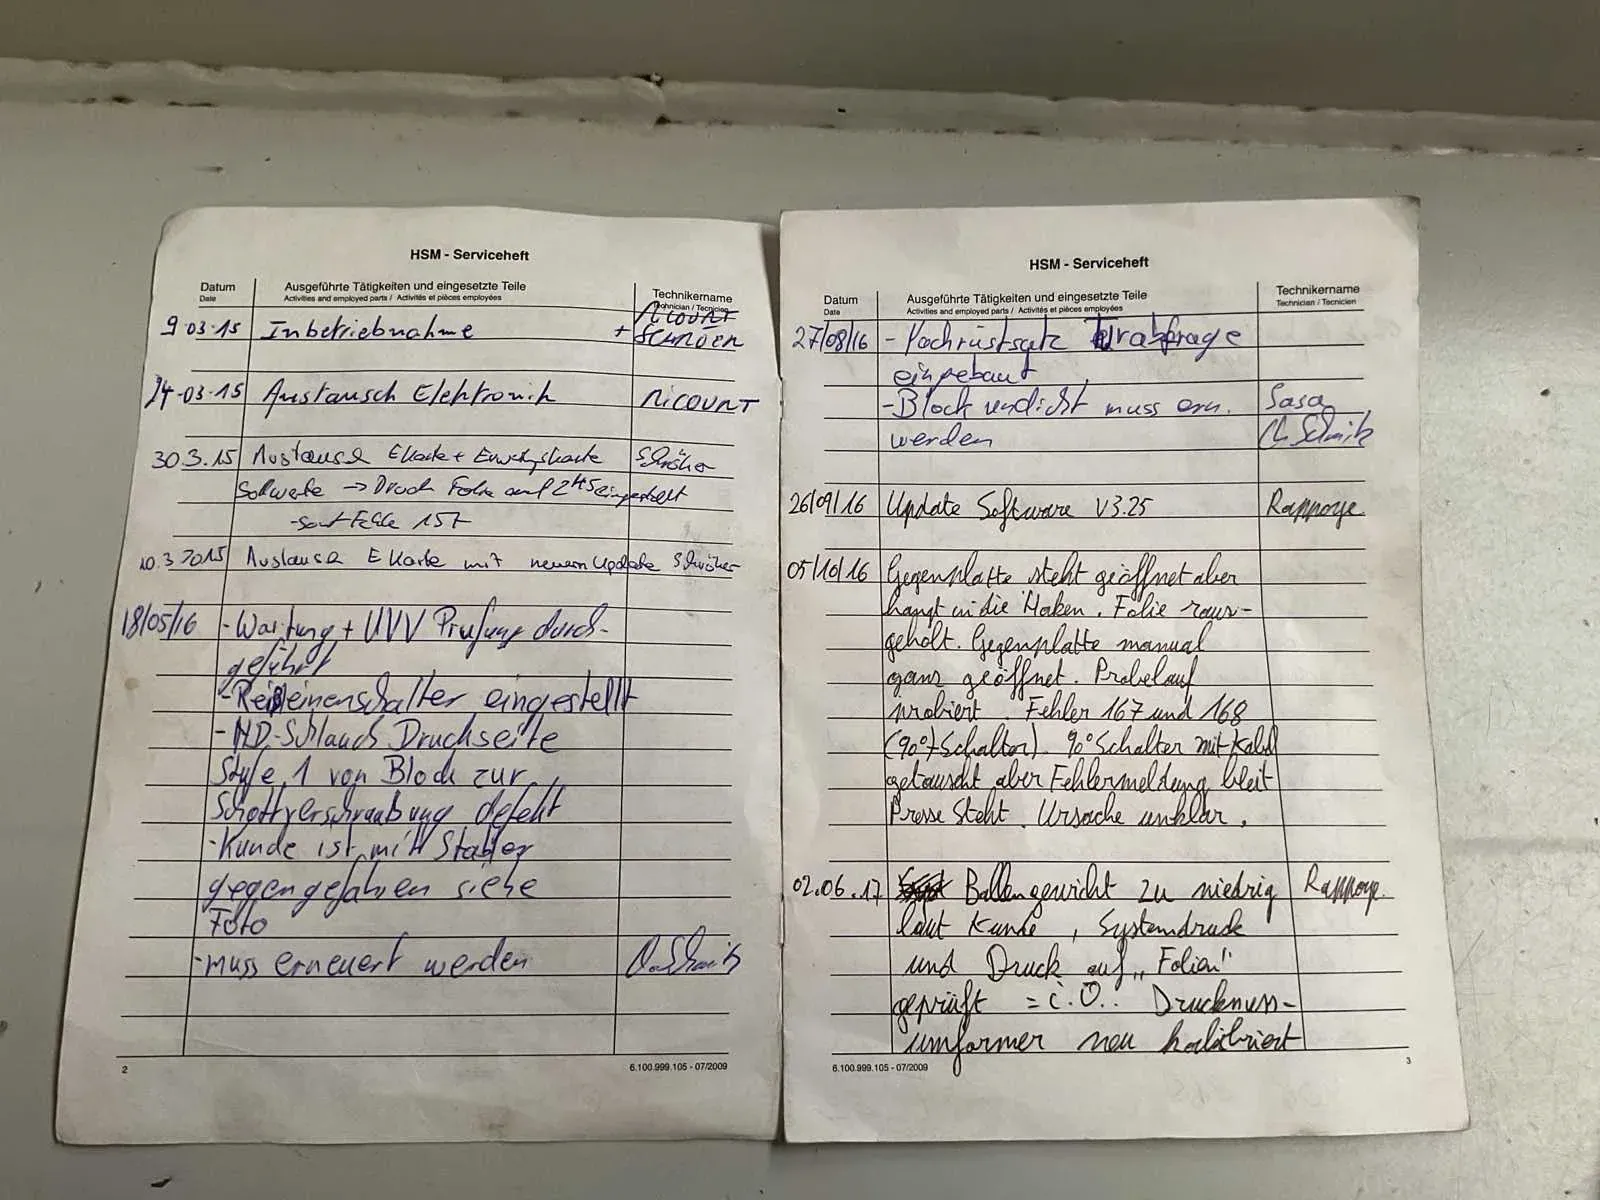 HSM - Serviceheft
Datum
Date
Ausgeführte Tätigkeiten und eingesetzte Teile
Activities and employed parts / Activités et pièces employées
Technikername
Technician / Tecnicien
9.03.15 Inbetriebnahme + RICOURT
24.03.15 Austausch Elektronik RICOURT
30.3.15 Austausch Ekarte + Schröher
Sollwerte -> Druck Folie auf 245 eingestellt
- sonst Fehler 157
10.3.2015 Austausch EKarte mit neuem Update Schröher
18/05/16 - Wartung + UVV Prüfung durch-
geführt
- Reißleinenschalter eingestellt
- HD-Schlauch Druckseite
Style 1 von Block zur
Schottverschraubung defekt
- Kunde ist mit Stabler
gegengefahren siehe
Foto
- muss erneuert werden
2
6.100.999.105 - 07/2009
HSM - Serviceheft
Datum
Date
Ausgeführte Tätigkeiten und eingesetzte Teile
Activities and employed parts / Activités et pièces employées
Technikername
Technician / Tecnicien
27/08/16 - Nachrüstsatz Türabfrage
eingebaut
- Block undicht muss ern. Sasa
werden
26/09/16 Update Software V3.25 Rapporye
05/10/16 Gegenplatte steht geöffnet aber
hangt in die Haken. Folie raus-
geholt. Gegenplatte manual
ganz geöffnet. Probelauf
probiert. Fehler 167 und 168
(90°-Schalter). 90° Schalter mit Kabel
getauscht aber Fehlermeldung bleit
Presse Steht. Ursache unklar.
02.06.17 Ballengewicht zu niedrig Rapporye
laut Kunde, Systemdruck
und Druck auf "Folien"
geprüft = i.O.. Druckmess-
umformer neu kalibriert
6.100.999.105 - 07/2009
3